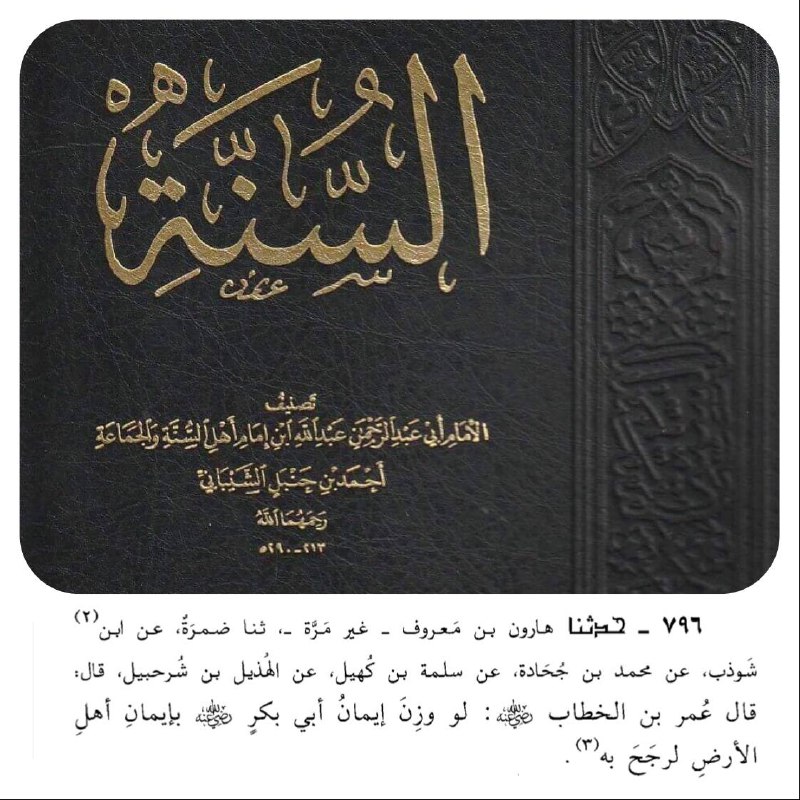 السُّنَّةُ
تصنيف
الإمام أبي عبد الرحمن عبد الله ابن إمام أهل السُّنَّة والجماعة
أحمد بن حنبل الشيباني
رحمهما الله
٢١٣ - ٢٩٠هـ
٧٩٦ ـ حدثنا هارون بن مَعروف ـ غير مَرَّة ـ، ثنا ضمرَةُ، عن ابن(٢)
شَوذب، عن محمد بن جُحَادة، عن سلمة بن كُهيل، عن الهُذيل بن شُرحبيل، قال:
قال عُمر بن الخطاب رضي الله عنه: لو وزِنَ إيمانُ أبي بكرٍ رضي الله عنه بإيمانِ أهلِ
الأرضِ لرجَحَ به(٣).